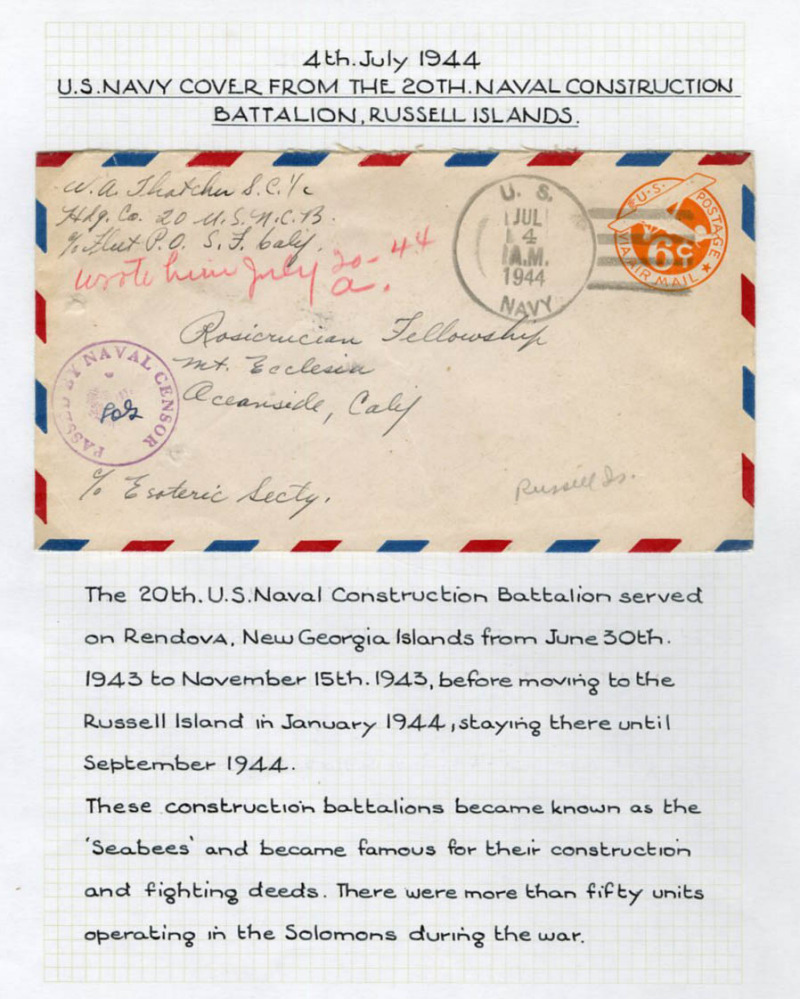 4th.July 1944
U.S.NAVY COVER FROM THE 20TH.NAVAL CONSTRUCTION
BATTALION,RUSSELL ISLANDS.
W.A. Thatcher S.C.1/c
Hdq. Co. 20 U.S.N.C.B.
℅ Fleet P.O. S.F. Calif.
wrote him July 20-44
a.
U. S.
JUL
4
A.M.
1944
NAVY
U.S. POSTAGE
6¢
VIA AIR MAIL
Rosicrucian Fellowship
Mt. Ecclesia
Oceanside, Calif
PASSED BY NAVAL CENSOR
℅ Esoteric Secty.
Russell Is.
The 20th.U.S.Naval Construction Battalion served
on Rendova, New Georgia Islands from June 30th.
1943 to November 15th.1943, before moving to the
Russell Island in January 1944, staying there until
September 1944.
These construction battalions became known as the
'Seabees' and became famous for their construction
and fighting deeds. There were more than fifty units
operating in the Solomons during the war.